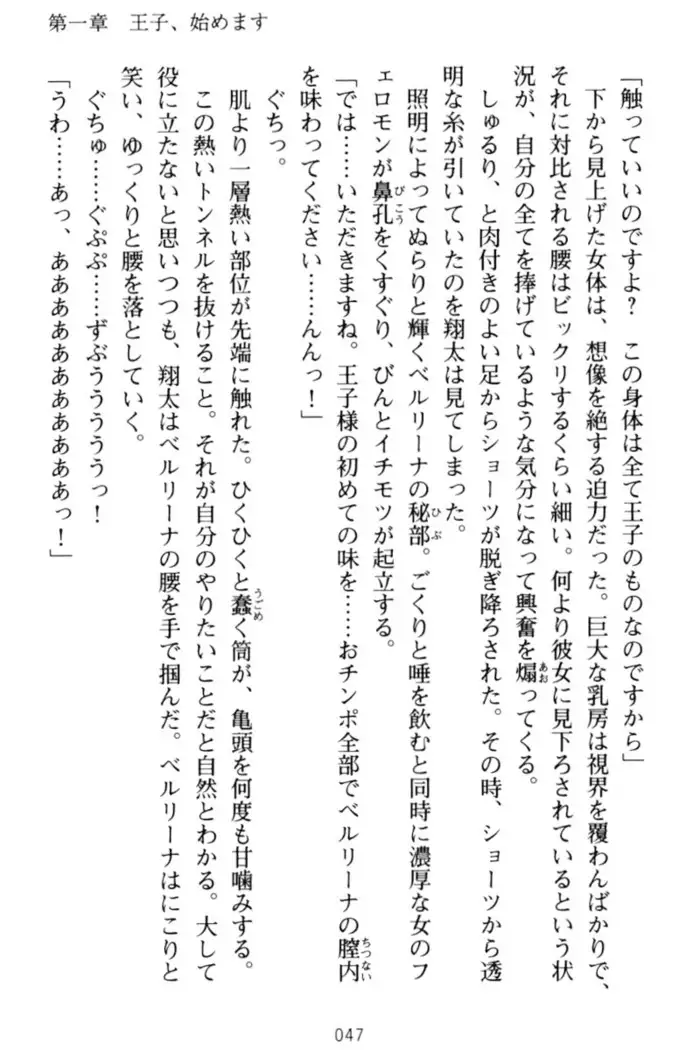 第一章　王子、始めます
「触っていいのですよ？　この身体は全て王子のものなのですから」
　下から見上げた女体は、想像を絶する迫力だった。巨大な乳房は視界を覆わんばかりで、
それに対比される腰はビックリするくらい細い。何より彼女に見下ろされているという状
況が、自分の全てを捧げているような気分になって興奮を煽ってくる。
　しゅるり、と肉付きのよい足からショーツが脱ぎ降ろされた。その時、ショーツから透
明な糸が引いていたのを翔太は見てしまった。
　照明によってぬらりと輝くベルリーナの秘部。ごくりと唾を飲むと同時に濃厚な女のフ
ェロモンが鼻孔をくすぐり、びんとイチモツが起立する。
「では……いただきますね。王子様の初めての味を……おチンポ全部でベルリーナの膣内
を味わってください……んんっ！」
　ぐちっ。
　肌より一層熱い部位が先端に触れた。ひくひくと蠢く筒が、亀頭を何度も甘噛みする。
　この熱いトンネルを抜けること。それが自分のやりたいことだと自然とわかる。大して
役に立たないと思いつつも、翔太はベルリーナの腰を手で掴んだ。ベルリーナはにこりと
笑い、ゆっくりと腰を落としていく。
　ぐちゅ……ぐぷぷ……ずぶうううううっ！
「うわ……あっ、ああああああああああああっ！」
047